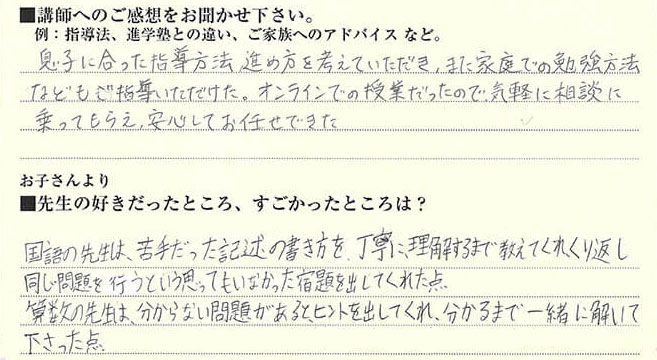 ■講師へのご感想をお聞かせ下さい。
例：指導法、進学塾との違い、ご家族へのアドバイス など。
息子に合った指導方法、進め方を考えていただき、また家庭での勉強方法
などもご指導いただけた。オンラインでの授業だったので、気軽に相談に
乗ってもらえ、安心してお任せできた
お子さんより
■先生の好きだったところ、すごかったところは？
国語の先生は、苦手だった記述の書き方を、丁寧に、理解するまで教えてくれ、くり返し
同じ問題を行うという思ってもいなかった宿題を出してくれた点。
算数の先生は、分からない問題があると、ヒントを出してくれ、分かるまで一緒に解いて
下さった点